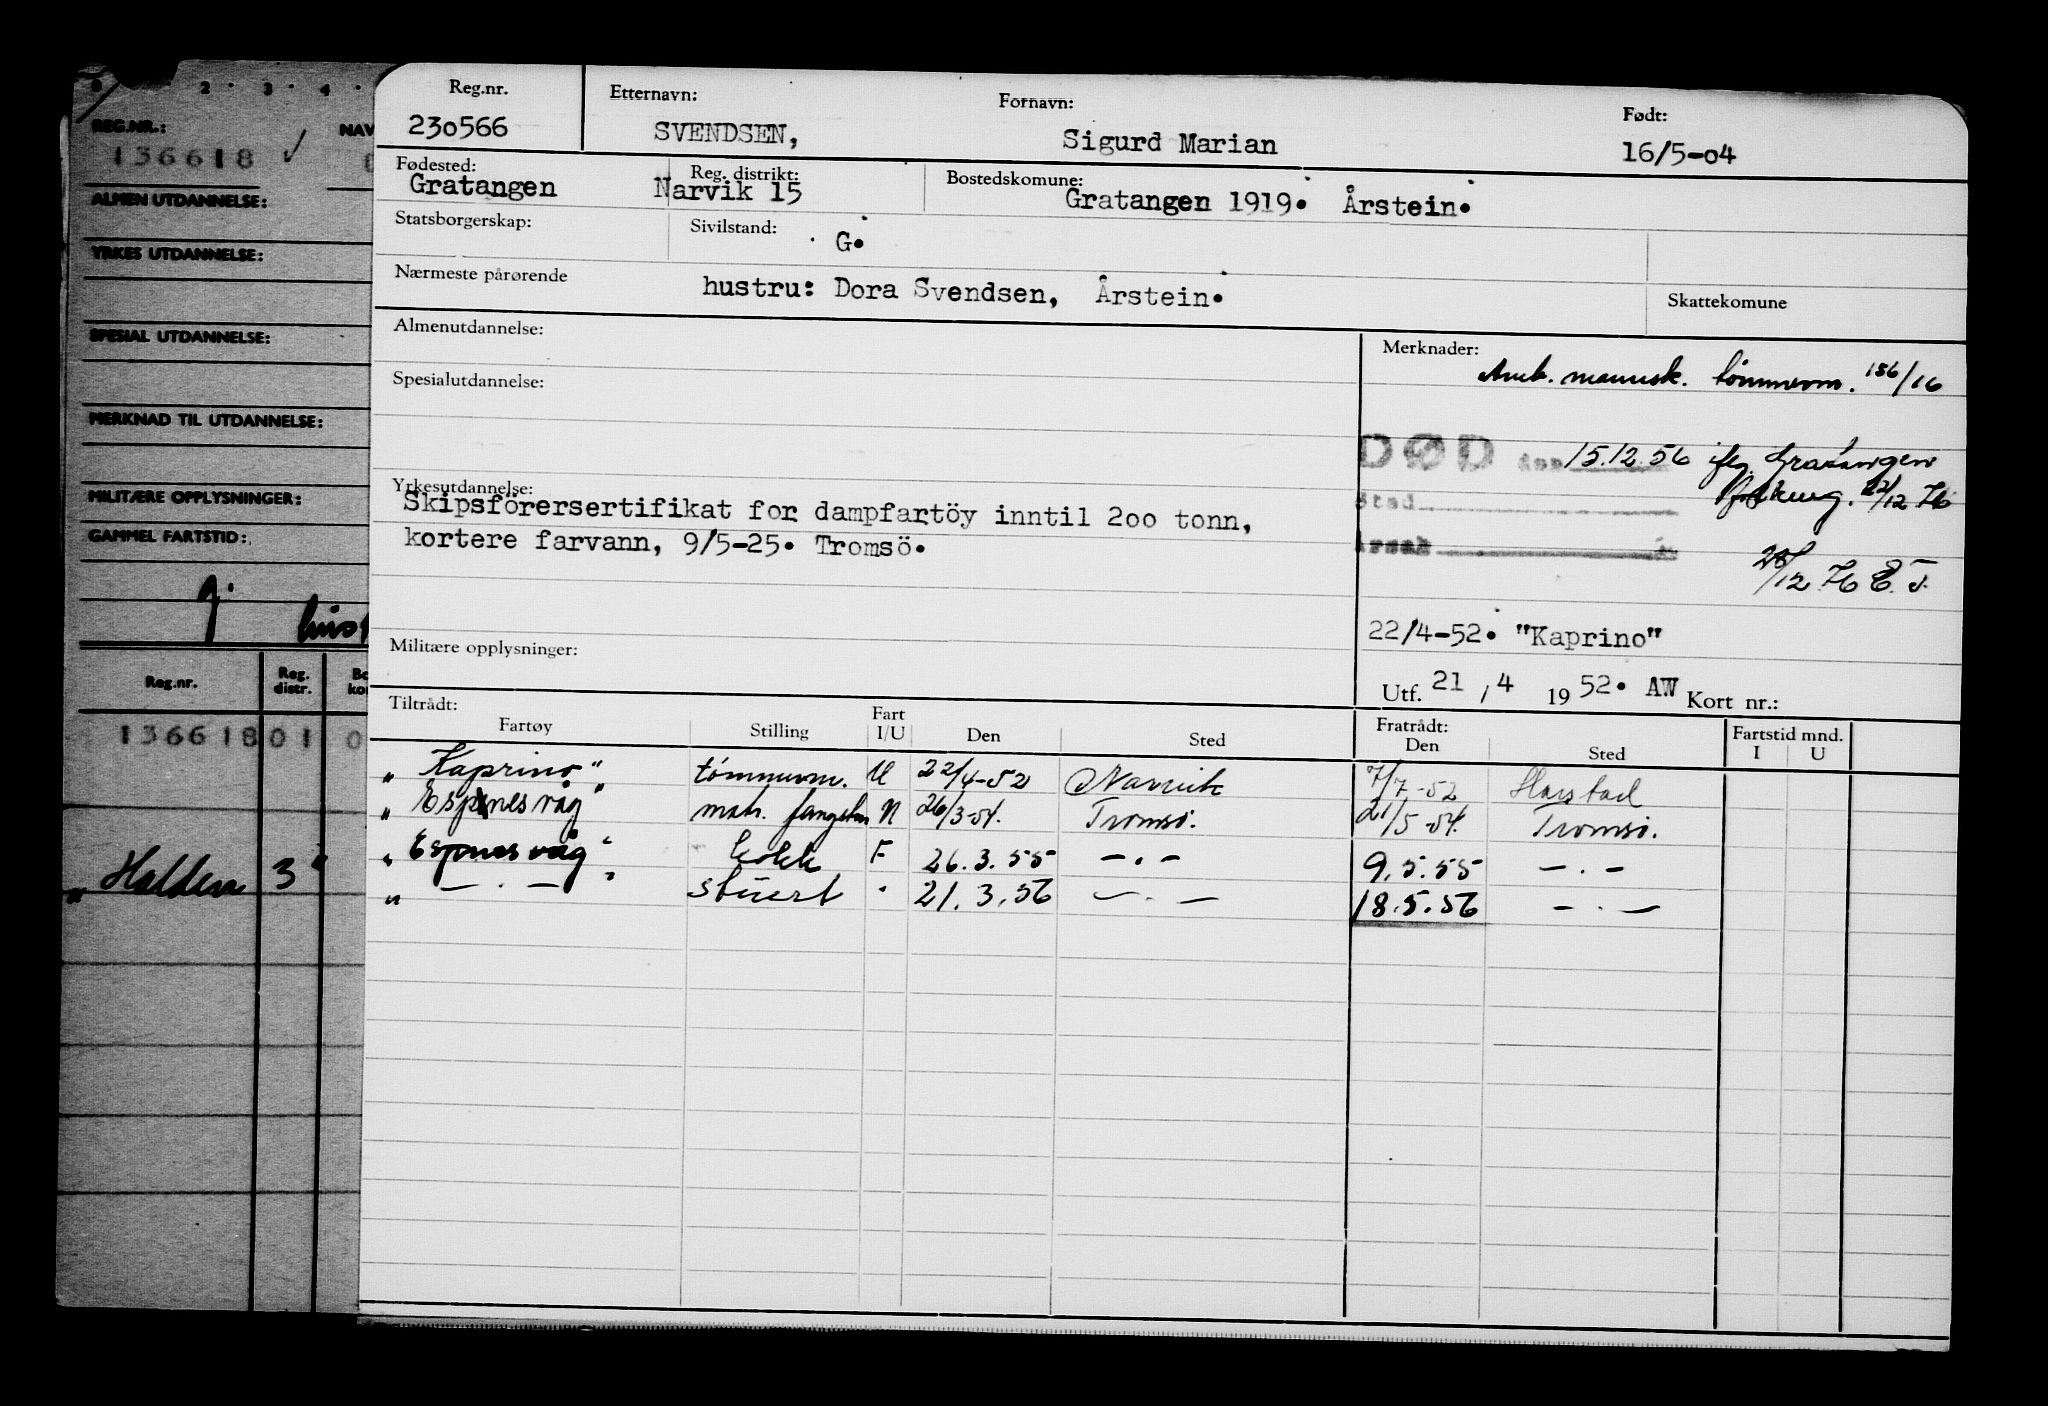 0 2 · 3 · 4 ·
REG.NR.: NAV
136618 ✓
ALMEN UTDANNELSE:
YRKES UTDANNELSE:
SPESIAL UTDANNELSE:
MERKNAD TIL UTDANNELSE:
MILITÆRE OPPLYSNINGER:
GAMMEL FARTSTID:
g.
Reg.nr. Reg. distr. Bo kor
136618 01 0
"Halden 3"
Reg.nr. Etternavn: Fornavn: Født:
230566 SVENDSEN, Sigurd Marian 16/5-04
Fødested: Reg. distrikt: Bostedskomune:
Gratangen Narvik 15 Gratangen 1919. Årstein.
Statsborgerskap: Sivilstand: G.
Nærmeste pårørende hustru: Dora Svendsen, Årstein. Skattekomune
Almenutdannelse: Merknader:
mannsk. tømmerm. 156/16
Spesialutdannelse:
DØD den 15.12.56 Gratangen
Sted 22/12 76
Årsak
28/12 76 E.T.
Yrkesutdannelse:
Skipsförersertifikat for dampfartöy inntil 200 tonn,
kortere farvann, 9/5-25. Tromsö.
22/4-52. "Kaprino"
Militære opplysninger:
Utf. 21 / 4 1952. AW Kort nr.:
Tiltrådt: Fratrådt: Fartstid mnd.
Fartøy Stilling Fart I/U Den Sted Den Sted I U
"Kaprino" tømmerm. U 22/4-52 Narvik 7/7-52 Harstad
"Espenesvåg" matr. fangstm N 26/3-54. Tromsø. 21/5-54. Tromsø.
"Espnesvåg" kokk F 26.3.55 — . — 9.5.55 — . —
" — . — " stuert " 21.3.56 — . — 18.5.56 — . —